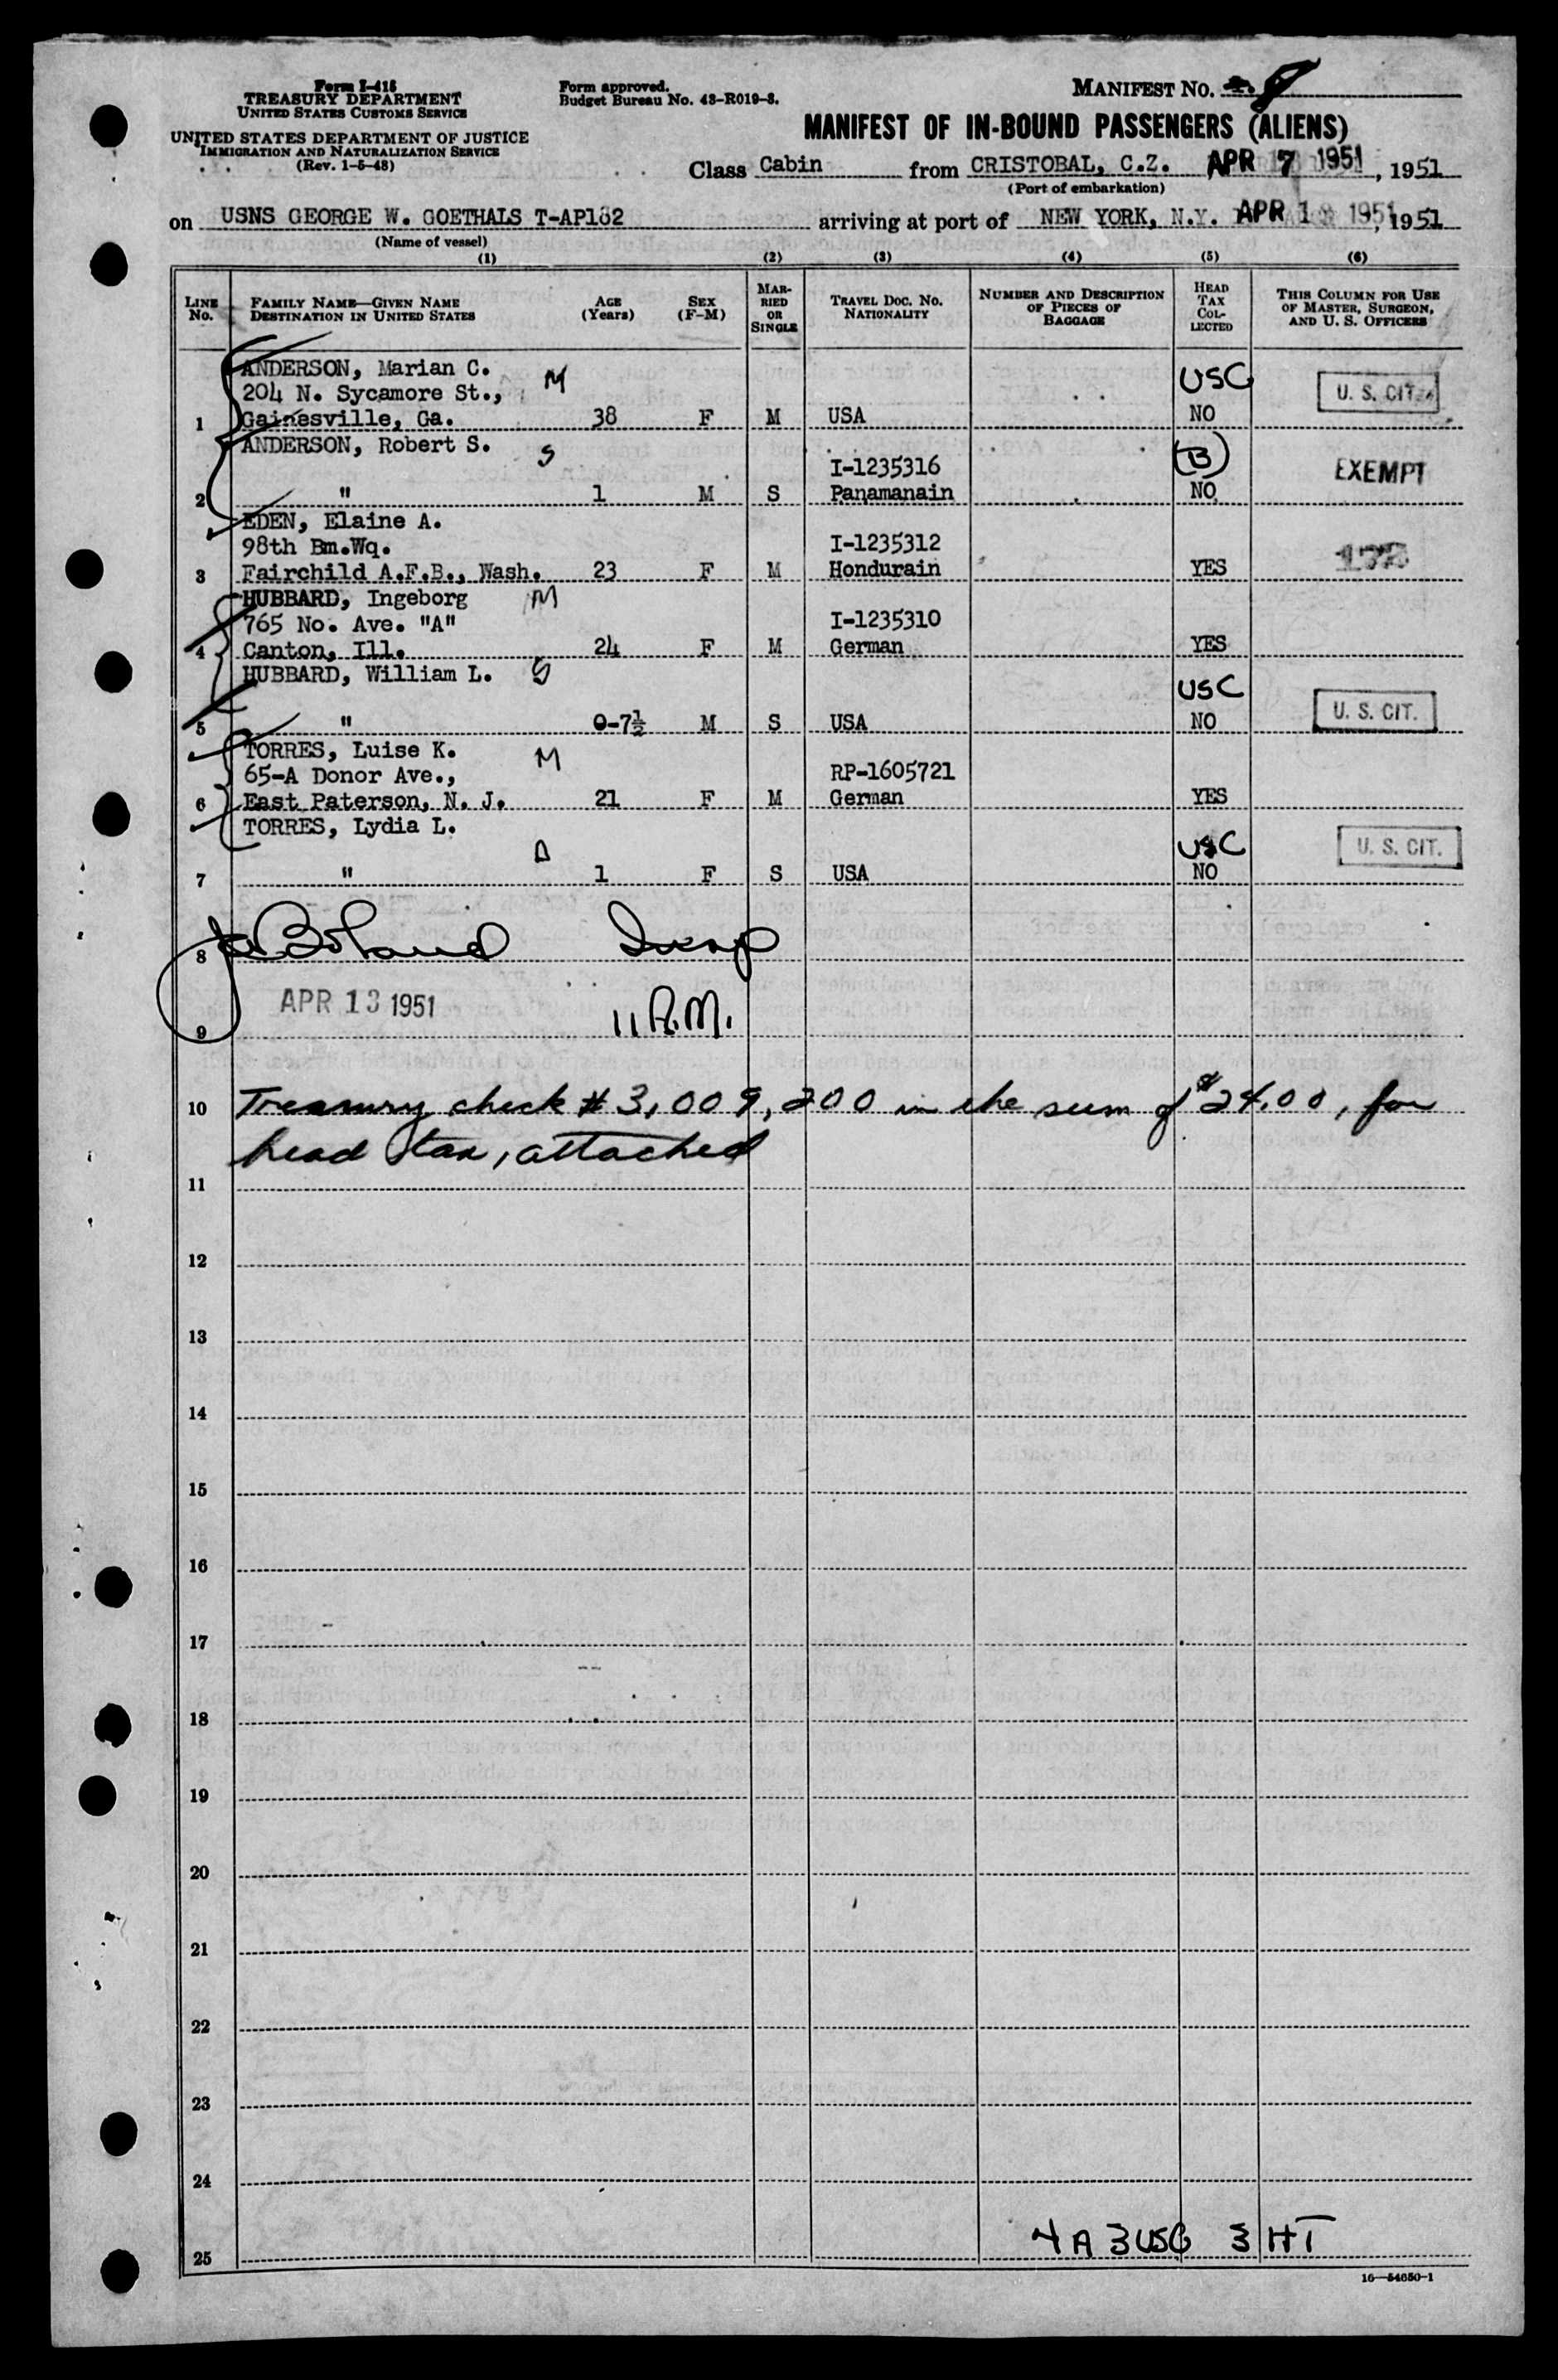 Form I-418
TREASURY DEPARTMENT
UNITED STATES CUSTOMS SERVICE
UNITED STATES DEPARTMENT OF JUSTICE
IMMIGRATION AND NATURALIZATION SERVICE
(Rev. 1-5-48)
Form approved.
Budget Bureau No. 43-R019-3.
MANIFEST NO. 8
MANIFEST OF IN-BOUND PASSENGERS (ALIENS)
Class Cabin from CRISTOBAL, C.Z. APR 7 1951, 1951
(Port of embarkation)
on USNS GEORGE W. GOETHALS T-AP182 arriving at port of NEW YORK, N.Y. APR 13 1951, 1951
(Name of vessel)
(1) (2) (3) (4) (5) (6)
LINE No. FAMILY NAME—GIVEN NAME DESTINATION IN UNITED STATES AGE (Years) SEX (F-M) MARRIED OR SINGLE TRAVEL DOC. NO. NATIONALITY NUMBER AND DESCRIPTION OF PIECES OF BAGGAGE HEAD TAX COLLECTED THIS COLUMN FOR USE OF MASTER, SURGEON, AND U. S. OFFICERS
ANDERSON, Marian C. M USC U. S. CIT.
204 N. Sycamore St.,
1 Gainesville, Ga. 38 F M USA NO
ANDERSON, Robert S. S (B) EXEMPT
I-1235316
2 " 1 M S Panamanain NO
EDEN, Elaine A.
98th Bm.Wq. I-1235312
3 Fairchild A.F.B., Wash. 23 F M Hondurain YES
HUBBARD, Ingeborg M
765 No. Ave. "A" I-1235310
4 Canton, Ill. 24 F M German YES
HUBBARD, William L. S USC U. S. CIT.
5 " 0-7½ M S USA NO
TORRES, Luise K. M
65-A Donor Ave., RP-1605721
6 East Paterson, N. J. 21 F M German YES
TORRES, Lydia L. USC U. S. CIT.
7 " 1 F S USA NO
8 Boland Insp
APR 13 1951 11 A.M.
9
10 Treasury check # 3,009,200 in the sum of $24.00, for
head tax, attached
11
12
13
14
15
16
17
18
19
20
21
22
23
24
4 A 3 USC 3 HT
25
16—54650-1